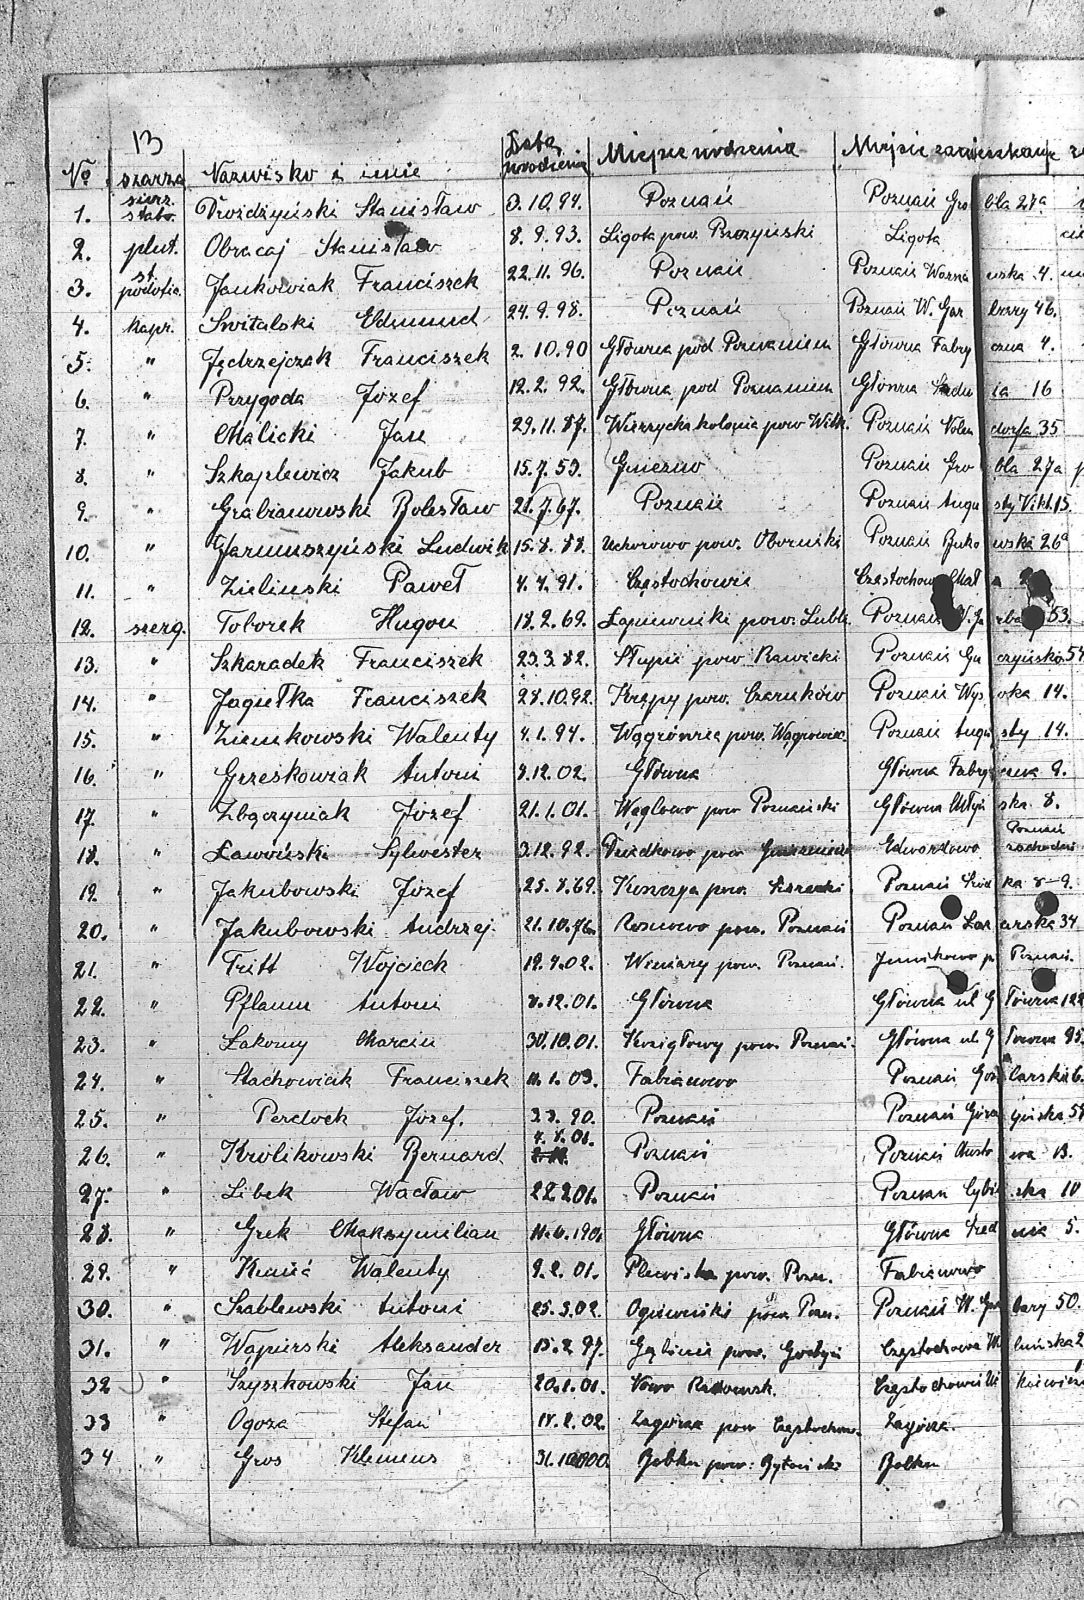 13
No szarża Nazwisko i imie Data urodzenia Miejsce urodzenia Miejsce zamieszkania
1. sierz. sztab. Drożdżyński Stanisław 3.10.94. Poznań Poznań Gro bla 27a
2. plut. Obracaj Stanisław 8.9.93. Ligota pow. Ligota
3. st. Jankowiak Franciszek 22.11.96. Poznań Poznań Warsza wska 4.
4. kapr. Switalski Edmund 24.9.98. Poznań Poznań W. Gar bary 46.
5. " Jędrzejczak Franciszek 2.10.90 Główna pod Poznaniem Główna Fabry czna 4.
6. " Przygoda Józef 12.2.92. Główna pod Poznaniem Główna Średn ia 16
7. " Malicki Jan 29.11.87. kolonja pow. Witk. Poznań Nolen dorfa 35
8. " Szkaplewicz Jakub 15.7.59. Gniezno Poznań Gro bla 27a
9. " Grabianowski Bolesław 21.7.67. Poznań Poznań Augu sty Vikt. 15.
10. " Jarmuszyński Ludwik 15.8.88. Uchorowo pow. Oborniki Poznań Buko wska 26a
11. " Zieliński Paweł 4.4.91. Częstochowa
12. szereg. Toborek Hugon 18.2.69. Łagiewniki pow. Lubli. Poznań W. Ga rbary 53.
13. " Szkaradek Franciszek 23.3.82. Słupia pow. Rawicki Poznań
14. " Jagiełka Franciszek 28.10.92. Krępy pow. Czarnków Poznań Wys oka 14.
15. " Ziemkowski Walenty 4.1.94. Wągrównia pow. Wągrowiec. Poznań Augu sty 14.
16. " Grześkowiak Antoni 8.12.02. Główna Główna Fabry czna 9.
17. " Zbączyniak Józef 21.1.01. Węglewo pow. Poznański Główna Młyń ska 8.
18. " Ławiński Sylwester 3.12.92. pow. Edwardowo Poznań zachodni
19. " Jakubowski Józef 25.8.69. pow. Poznań 8-9.
20. " Jakubowski Andrzej. 21.10.76. Rosnowo pow. Poznań Poznań Łaz arska 34
21. " Tritt Wojciech 12.4.02. Winiary pow. Poznań. Junikowo p. Poznań.
22. " Pflaum Antoni 8.12.01. Główna Główna ul G łówna 122
23. " Łakomy Marcin 30.10.01. Koziegłowy pow. Poznań. Główna ul. G łówna 95.
24. " Stachowiak Franciszek 11.1.03. Fabianowo Poznań Goś larska 6.
25. " Perdoch Józef. 3.3.90. Poznań Poznań
26. " Królikowski Bernard 4.8.01. Poznań Poznań
27. " Libek Wacław 28.2.01. Poznań Poznań Cybi ńska 10
28. " Grek Maksymilian 11.6.1901 Główna Główna Śred nia 5.
29. " Kunic Walenty 9.2.01. Plewiska pow. Pozn. Fabianowo
30. " Szablewski Antoni 25.5.02. pow. Pozn. Poznań W. Gar bary 50.
31. " Wąpierski Aleksander 15.2.97. pow. Gostyń Częstochowa
32 " Szyszkowski Jan 20.1.01. Nowo Radomsk. Częstochowa
33 " Ogoza Stefan 18.2.02. Zagórze pow Częstochow. Zagórze.
34 " Gros Klemens 31.10.00. pow.